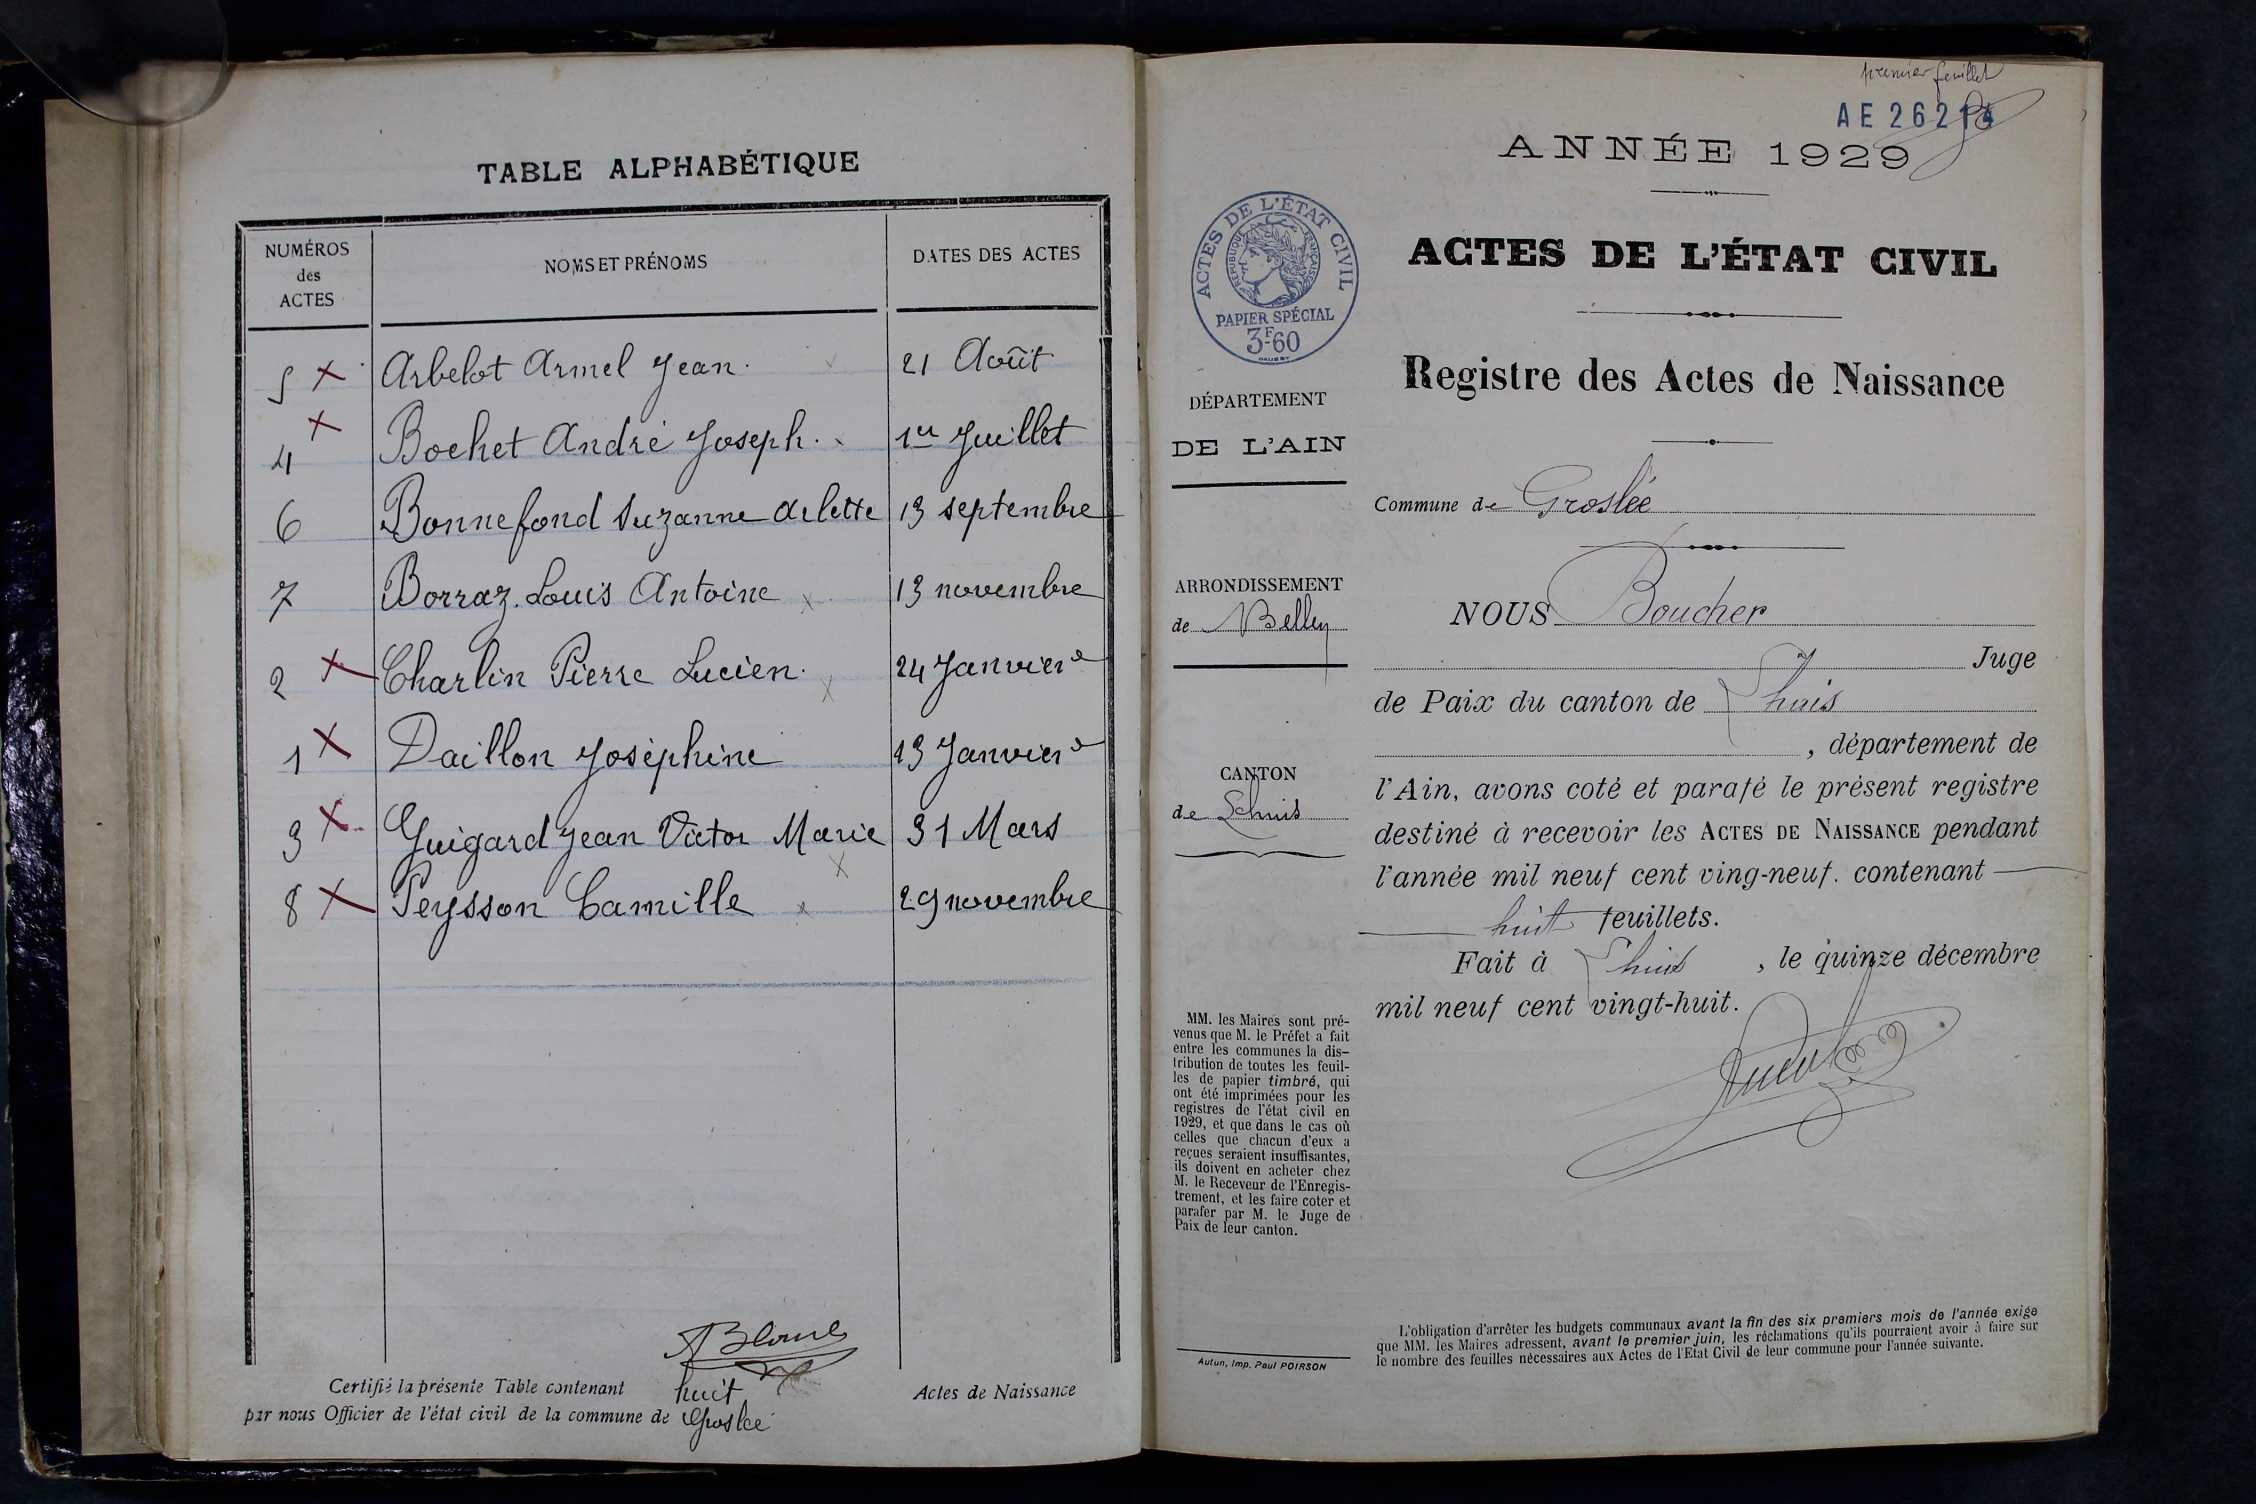 TABLE ALPHABÉTIQUE
NUMÉROS des ACTES
NOMS ET PRÉNOMS
DATES DES ACTES
5 Arbelot Armel Jean. 21 Août
4 Bochet André Joseph. 1er Juillet
6 Bonnefond Suzanne Arlette 13 septembre
7 Borraz Louis Antoine 13 novembre
2 Charlin Pierre Lucien. 24 Janvier
1 Daillon Joséphine 13 Janvier
3 Guigard Jean Victor Marie 31 Mars
8 Peysson Camille 29 novembre
Certifié la présente Table contenant huit Actes de Naissance
par nous Officier de l'état civil de la commune de Groslée
premier feuillet
AE 26214
ANNÉE 1929
ACTES DE L'ÉTAT CIVIL
RÉPUBLIQUE FRANÇAISE
PAPIER SPÉCIAL
3F60
ACTES DE L'ÉTAT CIVIL
Registre des Actes de Naissance
DÉPARTEMENT
DE L'AIN
Commune de Groslée
ARRONDISSEMENT
de Belley
NOUS Boucher
Juge
de Paix du canton de Lhuis
, département de
CANTON
de Lhuis
l'Ain, avons coté et parafé le présent registre
destiné à recevoir les ACTES DE NAISSANCE pendant
l'année mil neuf cent ving-neuf. contenant
huit feuillets.
Fait à Lhuis , le quinze décembre
mil neuf cent vingt-huit.
MM. les Maires sont pré-
venus que M. le Préfet a fait
entre les communes la dis-
tribution de toutes les feuil-
les de papier timbré, qui
ont été imprimées pour les
registres de l'état civil en
1929, et que dans le cas où
celles que chacun d'eux a
reçues seraient insuffisantes,
ils doivent en acheter chez
M. le Receveur de l'Enregis-
trement, et les faire coter et
parafer par M. le Juge de
Paix de leur canton.
Autun, Imp. Paul POIRSON
L'obligation d'arrêter les budgets communaux avant la fin des six premiers mois de l'année exige
que MM. les Maires adressent, avant le premier juin, les réclamations qu'ils pourraient avoir à faire sur
le nombre des feuilles nécessaires aux Actes de l'Etat Civil de leur commune pour l'année suivante.